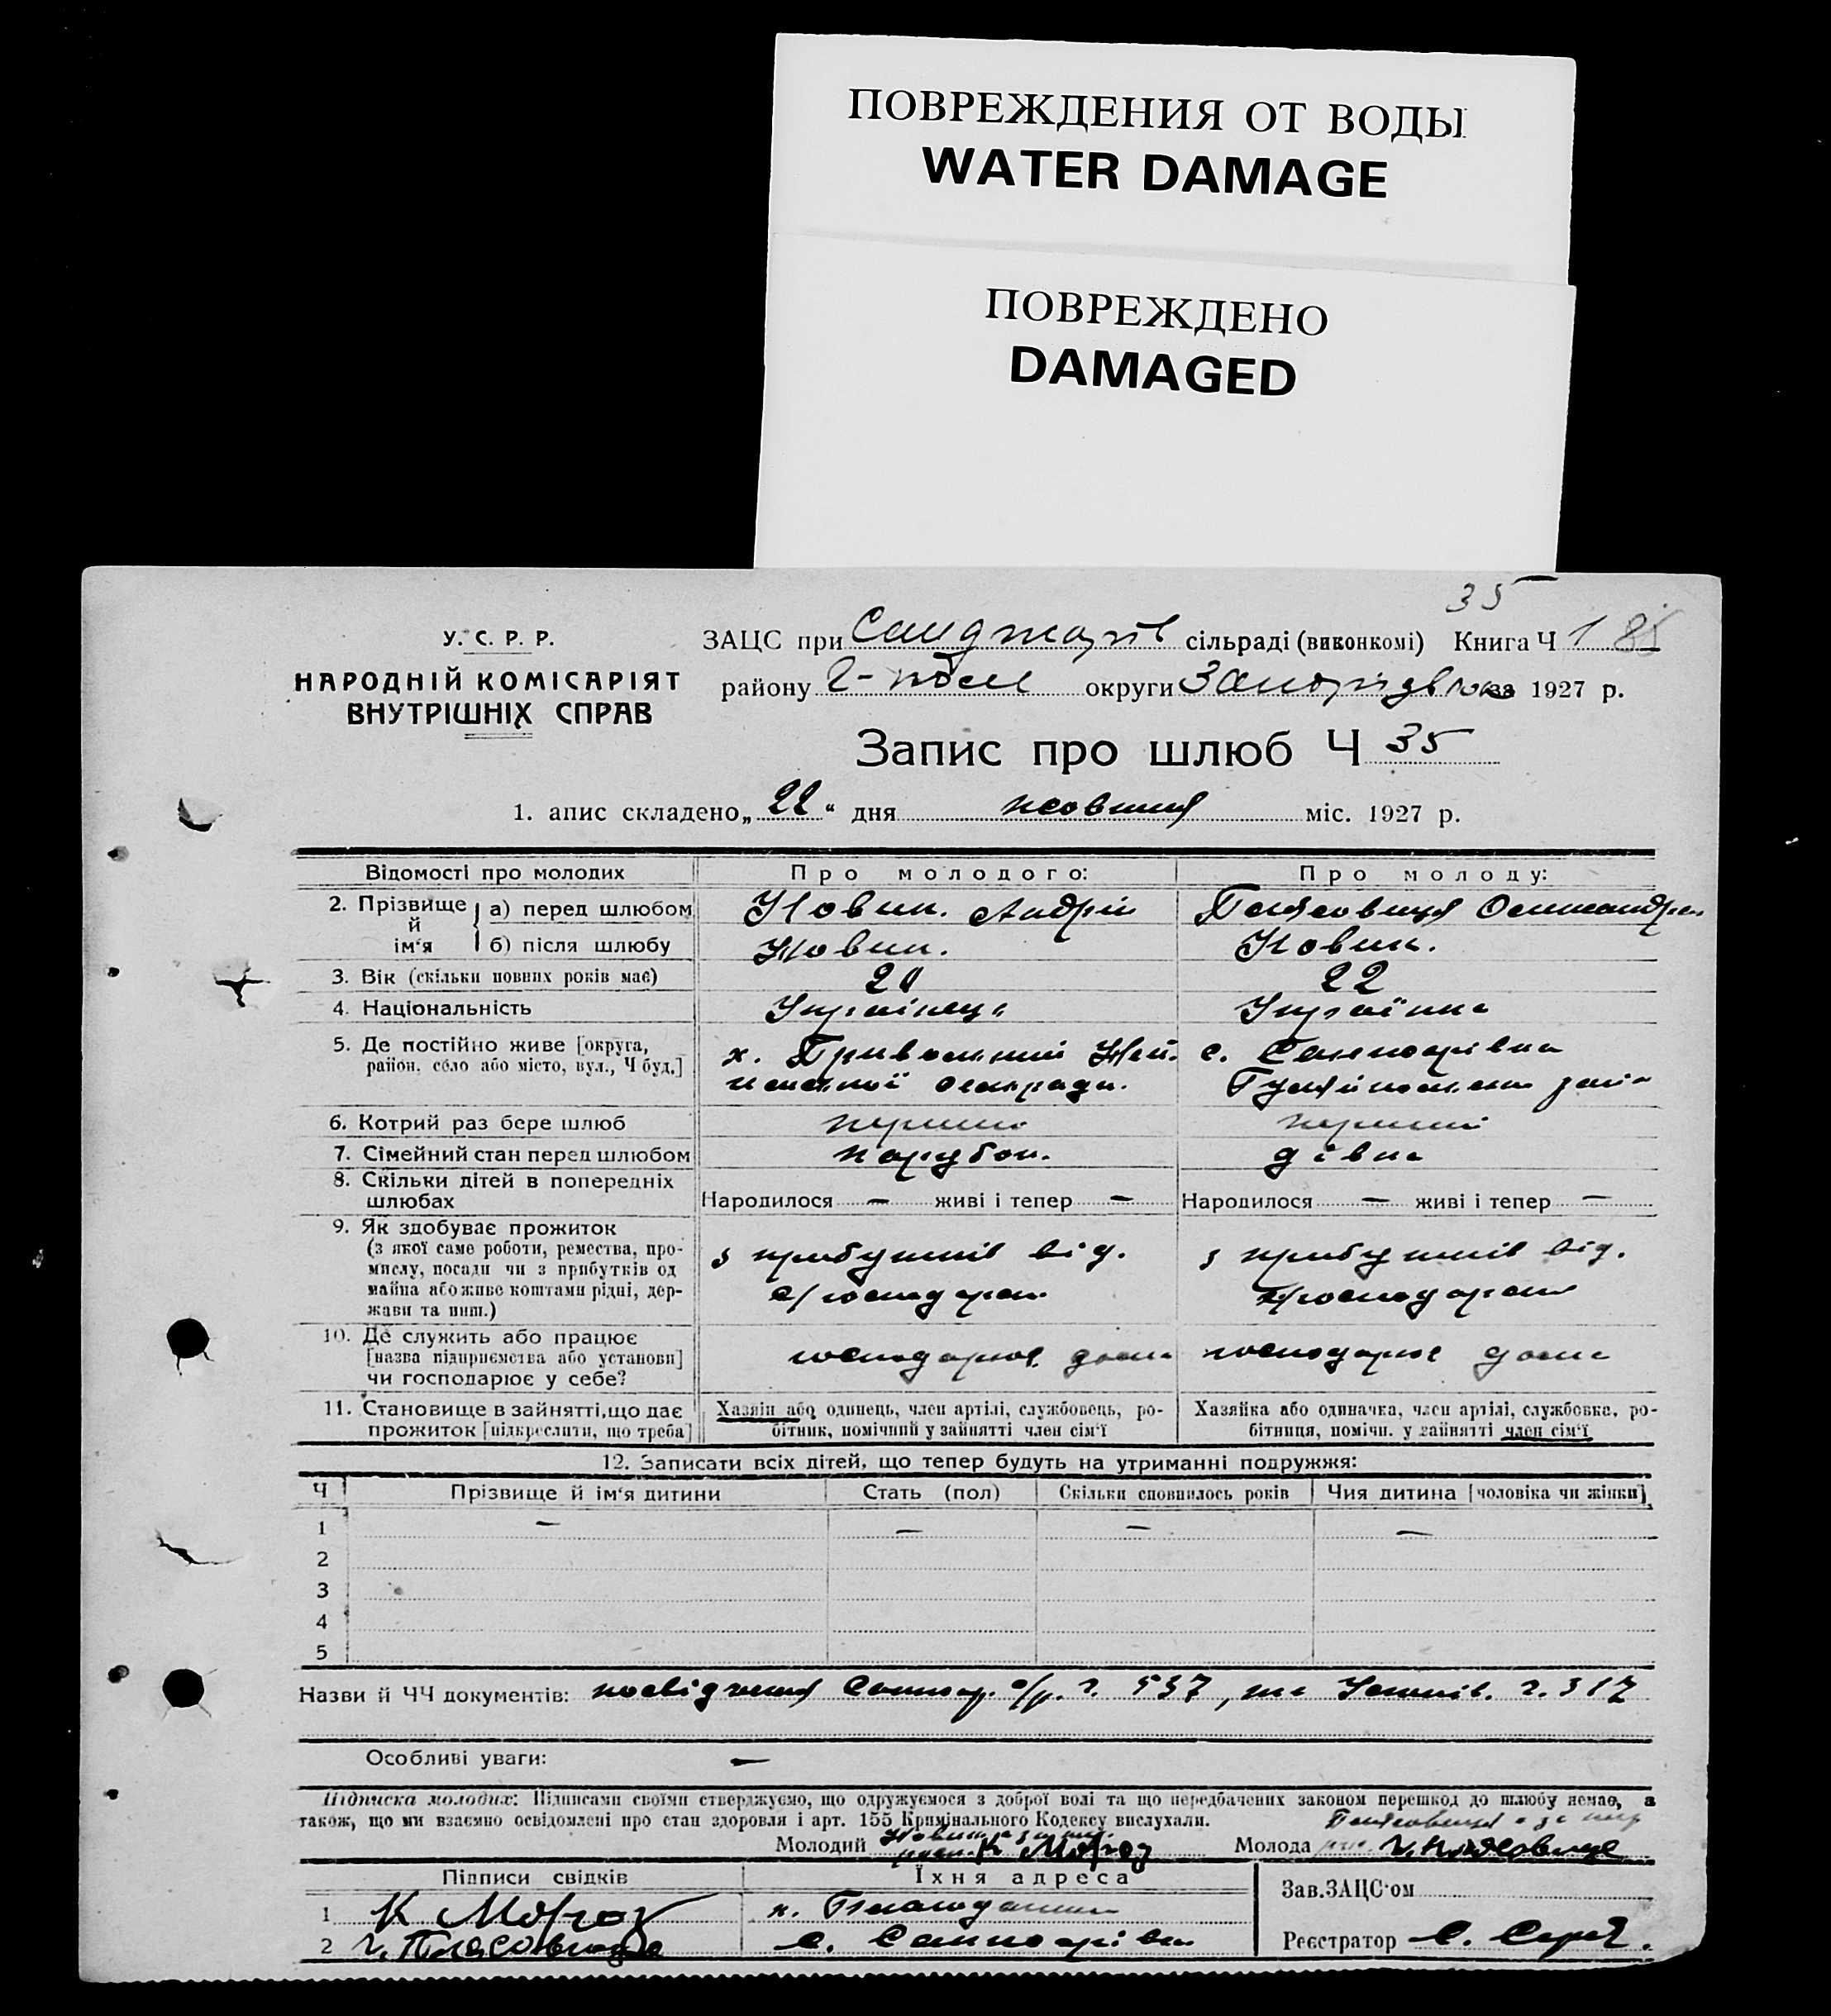 ПОВРЕЖДЕНИЯ ОТ ВОДЫ
WATER DAMAGE
ПОВРЕЖДЕНО
DAMAGED
35
У. С. Р. Р.
НАРОДНІЙ КОМІСАРІЯТ
ВНУТРІШНІХ СПРАВ
ЗАЦС при сільраді (виконкомі) Книга Ч 1 85
району Г-Поле округи за 1927 р.
Запис про шлюб Ч 35
1. апис складено „22“ дня жовтня міс. 1927 р.
Відомості про молодих Про молодого: Про молоду:
2. Прізвище й ім'я а) перед шлюбом Новик. Андрій Олександра
б) після шлюбу Новик. Новик.
3. Вік (скільки повних років має) 20 22
4. Національність Українець Українка
5. Де постійно живе [округа, х. Привольний с.
район, село або місто, вул., Ч буд.] сельради.
6. Котрий раз бере шлюб перший перший
7. Сімейний стан перед шлюбом парубок. дівка
8. Скільки дітей в попередніх
шлюбах Народилося — живі і тепер — Народилося — живі і тепер —
9. Як здобуває прожиток
(з якої саме роботи, ремества, про- з прибутків від. з прибутків від.
мислу, посади чи з прибутків од
майна або живе коштами рідні, дер- с/господарки с/господарки
жави та инш.)
10. Де служить або працює
[назва підприємства або установи] господарює дома господарює дома
чи господарює у себе?
11. Становище в зайнятті, що дає Хазяїн або одинець, член артілі, службовець, ро- Хазяйка або одиначка, член артілі, службовка, ро-
прожиток [підкреслити, що треба] бітник, помічний у зайнятті член сім'ї бітниця, помічн. у зайнятті член сім'ї
12. Записати всіх дітей, що тепер будуть на утриманні подружжя:
Ч Прізвище й ім'я дитини Стать (пол) Скільки сповнилось років Чия дитина [чоловіка чи жінки]
1 — — — —
2
3
4
5
Назви й ЧЧ документів: посвідчення с/р. ч. 537, та ч. 317
Особливі уваги: —
Підписка молодих: Підписами своїми стверджуємо, що одружуємося з доброї волі та що передбачених законом перешкод до шлюбу немає, а
також, що ми взаємно освідомлені про стан здоровля і арт. 155 Кримінального Кодексу вислухали.
Молодий К Мороз Молода
Підписи свідків Їхня адреса Зав. ЗАЦС'ом
1 К Мороз
2 с. Реєстратор